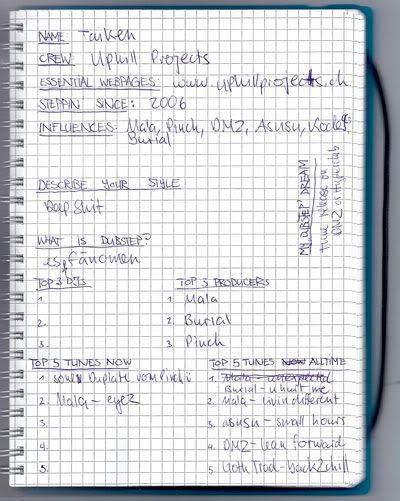 NAME: Taiken
CREW: Uphill Projects
ESSENTIAL WEBPAGES: www.uphillprojects.ch
STEPPIN SINCE: 2006
INFLUENCES: Mala, Pinch, DMZ, Asusu, Kode9,
Burial
MY DUBSTEP DREAM
tune release on
DMZ or Hyperdub
DESCRIBE YOUR STYLE
Deep Shit
WHAT IS DUBSTEP?
es fänomen
TOP 3 DJs
1.
2.
3.
TOP 3 PRODUCERS
1 Mala
2. Burial
3. Pinch
TOP 5 TUNES NOW
1 some Duplate vom Pinch
2 Mala - eyez
3.
4.
5.
TOP 5 TUNES NOW ALLTIME
1. Mala - unexpected
Burial - u hurt me
2. Mala - livin different
3 asusu - small hours
4 DMZ - lean forward
5 Goth Trad - back2chill